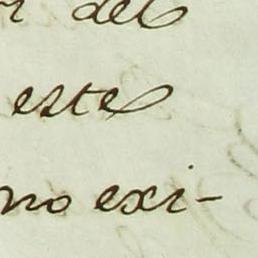 del
este
no exi-